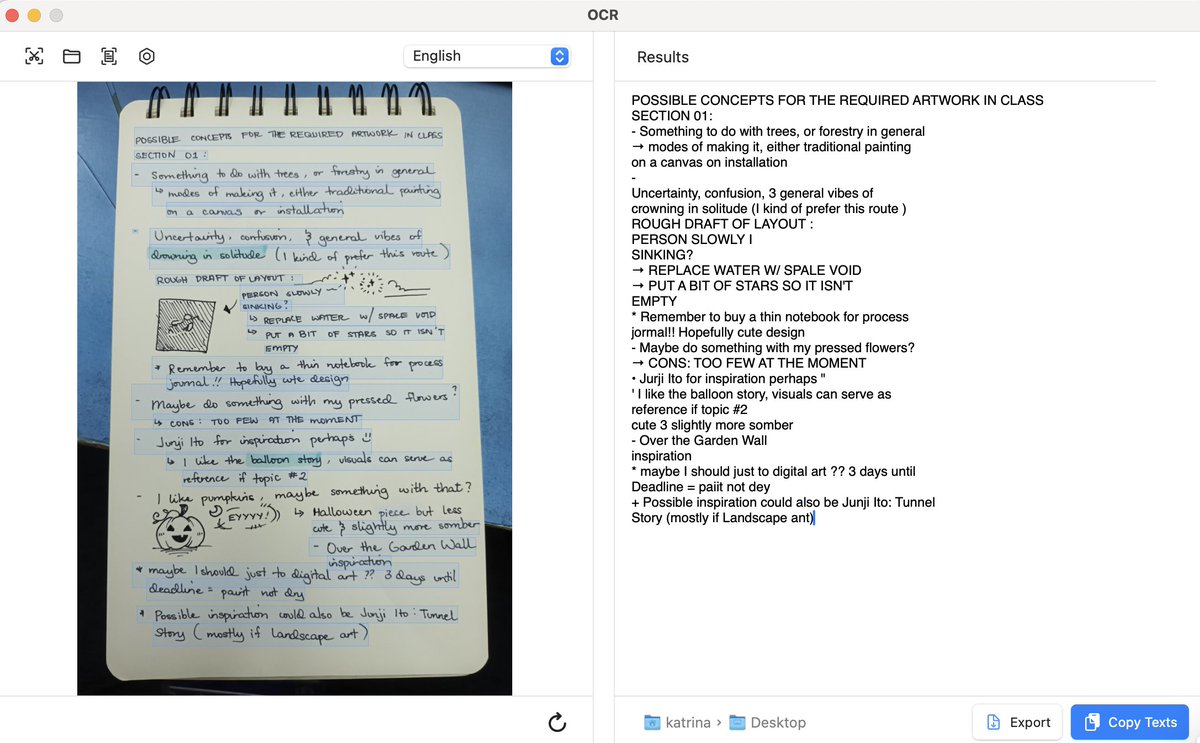 OCR
English
POSSIBLE CONCEPTS FOR THE REQUIRED ARTWORK IN CLASS
SECTION 01 :
- Something to do with trees, or forestry in general
↳ modes of making it, either traditional painting
on a canvas or installation
- Uncertainty, confusion, & general vibes of
drowning in solitude (I kind of prefer this route)
ROUGH DRAFT OF LAYOUT :
PERSON SLOWLY
SINKING?
↳ REPLACE WATER W/ SPALE VOID
↳ PUT A BIT OF STARS SO IT ISN'T
EMPTY
* Remember to buy a thin notebook for process
journal!! Hopefully cute design
- Maybe do something with my pressed flowers?
↳ CONS: TOO FEW AT THE MOMENT
- Junji Ito for inspiration perhaps
↳ I like the balloon story, visuals can serve as
reference if topic #2
- I like pumpkins, maybe something with that?
EYYYY!
↳ Halloween piece but less
cute & slightly more somber
- Over the Garden Wall
inspiration
* maybe I should just to digital art ?? 3 days until
deadline = paint not dry
* Possible inspiration could also be Junji Ito: Tunnel
Story (mostly if Landscape art)
Results
POSSIBLE CONCEPTS FOR THE REQUIRED ARTWORK IN CLASS
SECTION 01:
- Something to do with trees, or forestry in general
→ modes of making it, either traditional painting
on a canvas on installation
-
Uncertainty, confusion, 3 general vibes of
crowning in solitude (I kind of prefer this route )
ROUGH DRAFT OF LAYOUT :
PERSON SLOWLY I
SINKING?
→ REPLACE WATER W/ SPALE VOID
→ PUT A BIT OF STARS SO IT ISN'T
EMPTY
* Remember to buy a thin notebook for process
jormal!! Hopefully cute design
- Maybe do something with my pressed flowers?
→ CONS: TOO FEW AT THE MOMENT
• Jurji Ito for inspiration perhaps "
' I like the balloon story, visuals can serve as
reference if topic #2
cute 3 slightly more somber
- Over the Garden Wall
inspiration
* maybe I should just to digital art ?? 3 days until
Deadline = paiit not dey
+ Possible inspiration could also be Junji Ito: Tunnel
Story (mostly if Landscape ant)
katrina › Desktop
Export
Copy Texts